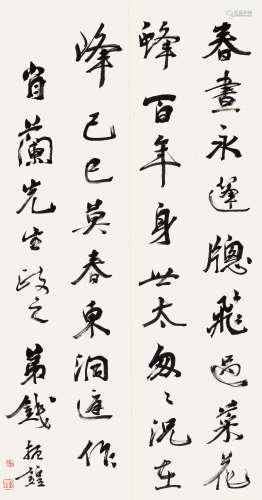 春晝永蓬牕飛過菜花
蜂百年身世太匆〻況在
峰己巳莫春東洞庭作
肖蘭先生政之弟錢振鍠